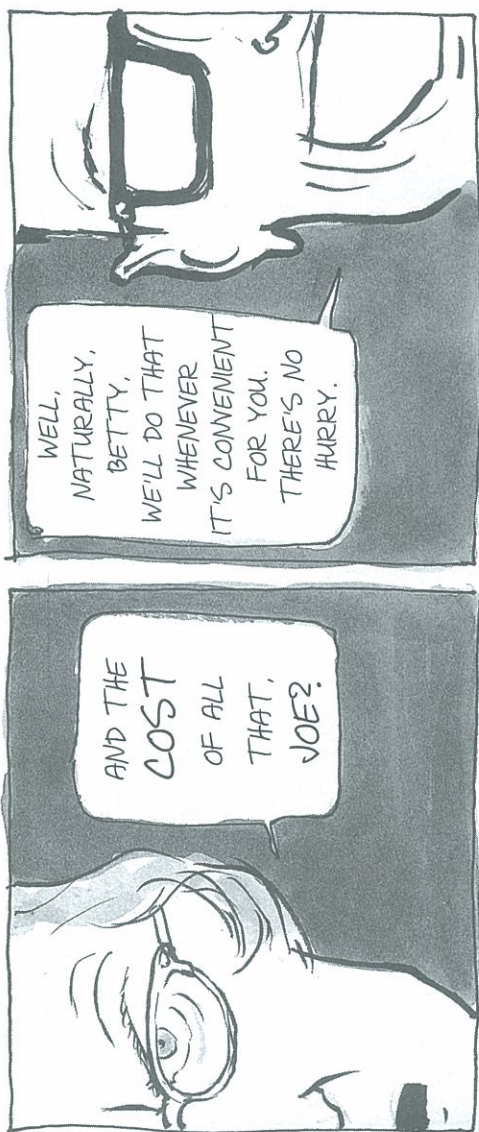 AND THE
COST
OF ALL
THAT,
JOE?
WELL,
NATURALLY,
BETTY,
WE'LL DO THAT
WHENEVER
IT'S CONVENIENT
FOR YOU.
THERE'S NO
HURRY.